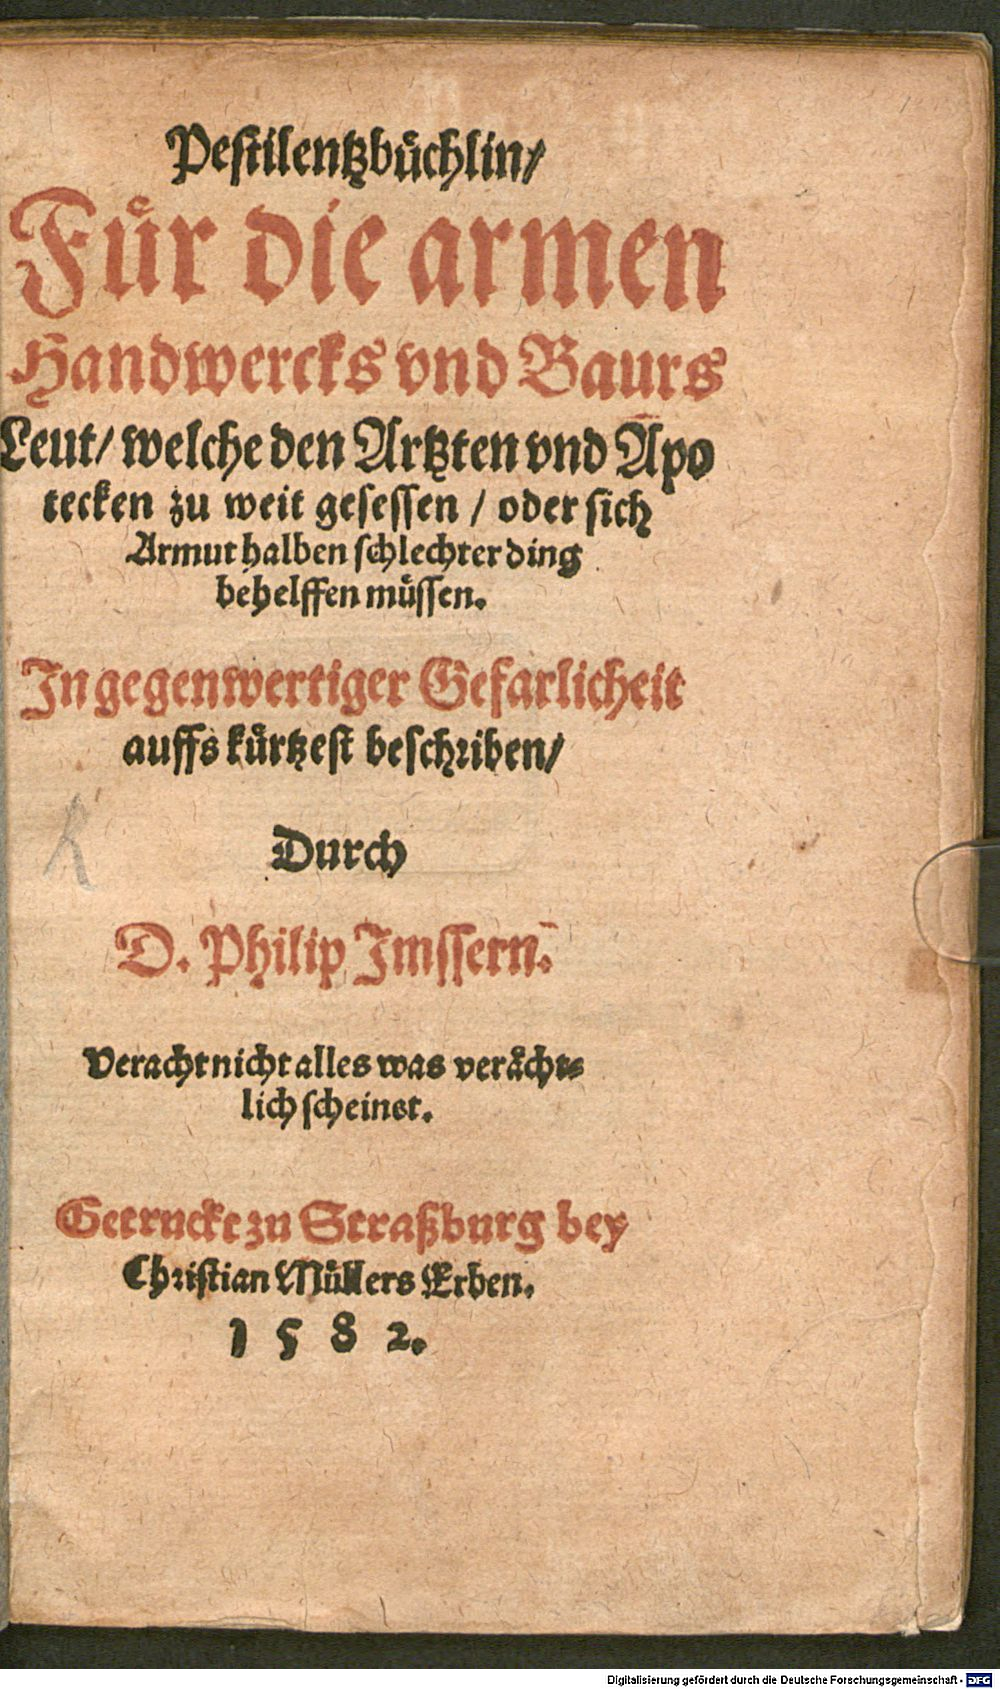 Pestilentzbuͤchlin/
Fuͤr die armen
Handwercks vnd Baurs
Leut/ welche den Artzten vnd Apo
tecken zu weit gesessen / oder sich
Armut halben schlechter ding
behelffen muͤssen.
In gegenwertiger Gefarlicheit
auffs kuͤrtzest beschriben/
Durch
D. Philip Imssern.
Veracht nicht alles was veraͤcht-
lich scheinet.
Getruckt zu Straßburg bey
Christian Muͤllers Erben.
1 5 8 2.
Digitalisierung gefördert durch die Deutsche Forschungsgemeinschaft - DFG